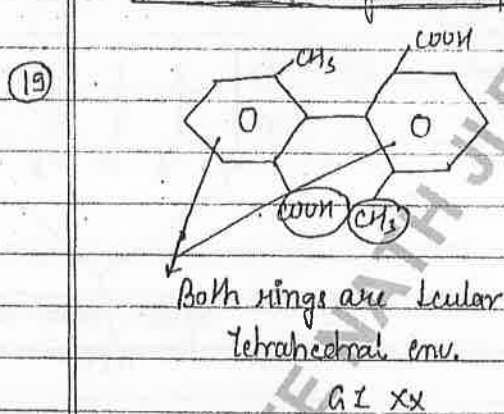 COOH
CH₃
19
O
O
COOH
CH₃
Both rings are ⊥cular
tetrahedral env.
GI xx